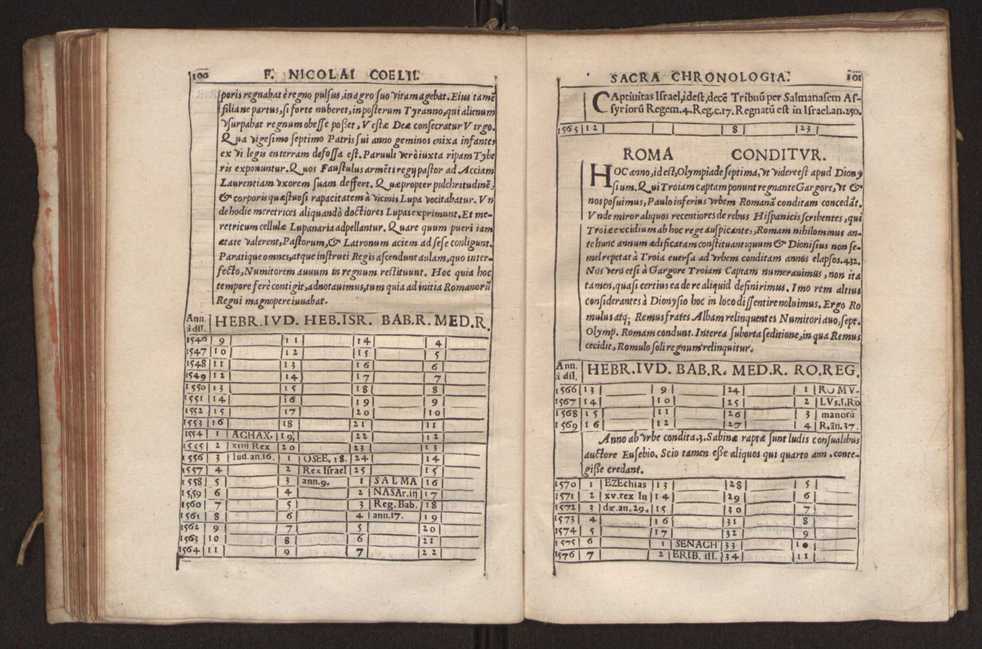 100 F. NICOLAI COELII.
poris regnabat è regno pulsus, in agro suo vitam agebat. Eius tamē
filiane partus, si forte nuberet, in posterum Tyranno, qui alienum
vsurpabat regnum obesse posset, Vestæ Deæ consecratur Virgo.
Qua vigesimo septimo Patris sui anno geminos enixa infantes
ex vi legis in terram defossa est. Paruuli verò iuxta ripam Tybe
ris exponuntur. Quos Faustulus armēti regij pastor ad Acciam
Laurentiam vxorem suam deffert. Quæ propter pulchritudinē,
& corporis quæstuosi rapacitatem à vicinis Lupa vocitabatur. Vn
de hodie meretrices aliquandò doctiores Lupas exprimunt. Et me-
retricum cellulæ Lupanaria adpellantur. Quare quum pueri iam
ætate valerent, Pastorum, & Latronum aciem ad sese colligunt.
Paratique omnes, atque instructi Regis ascendunt aulam, quo inter-
fecto, Numitorem auum in regnum restituunt. Hoc quia hoc
tempore ferè contigit, adnotauimus, tum quia ad initia Romanorū
Regni magnopere iuuabat.
Ann. i dil. HEBR.IVD. HEB.ISR. BAB.R. MED.R.
1546 9 11 14 4
1547 10 12 15 5
1548 11 13 16 6
1549 12 14 17 7
1550 13 15 18 8
1551 14 16 19 9
1552 15 17 20 10
1553 16 18 21 11
1554 1 ACHAX. 19 22 12
1555 2 xiiii Rex 20 23 13
1556 3 Iud.an.16. 1 OSEE, 18. 24 14
1557 4 2 Rex Israel 25 15
1558 5 3 ann.9. 1 SALMA 16
1559 6 4 2 NASAr.iij 17
1560 7 5 3 Reg. Bab. 18
1561 8 6 4 ann.17. 19
1562 9 7 5 20
1563 10 8 6 21
1564 11 9 7 22
SACRA CHRONOLOGIA. 101
CAptiuitas Israel, id est, decē Tribuū per Salmanasem As-
syriorū Regem. 4. Reg. c. 17. Regnatū est in Israel. an. 250.
1565 12 8 23
ROMA CONDITVR.
HOC anno, id est, Olympiade septima, vt videre est apud Diony
sium. Qui Troiam captam ponunt regnante Gargore, vt &
nos posuimus, Paulo inferius vrbem Romanā conditam concedāt.
Vnde miror aliquos recentiores de rebus Hispanicis scribentes, qui
Troiæ excidium ab hoc rege auspicante, Romam nihilominus an-
te hunc annum ædificatam constituant: quum & Dionisius non se-
mel repetat à Troia euersa ad vrbem conditam annos elapsos. 432.
Nos verò etsi à Gargore Troiam Captam numerauimus, non ita
tamen, quasi certius ea de re aliquid definirimus. Imo rem altius
considerantes à Dionysio hoc in loco dissentire noluimus. Ergo Ro
mulus atq; Remus frates Albam relinquentes Numitori auo, sept.
Olymp. Romam condunt. Interea suborta seditione, in qua Remus
cecidit, Romulo soli regnum relinquitur.
Ann. i dil. HEBR.IVD. BAB.R. MED.R. RO.REG.
1566 13 9 24 1 ROMV.
1567 14 10 25 2 LVs.I.Ro
1568 15 11 26 3 manorū
1569 16 12 27 4 R.ān.37.
Anno ab vrbe condita. 3. Sabinæ raptæ sunt ludis consualibus
auctore Eusebio. Scio tamen esse aliquos qui quarto ann. conte-
gisse credant.
1570 1 EZEchias 13 28 5
1571 2 xv.rex In 14 29 6
1572 3 dæ.an.29. 15 30 7
1573 4 16 31 8
1574 5 17 32 9
1575 6 1 SENACH 33 10
1576 7 2 ERIB. iii. 34 11